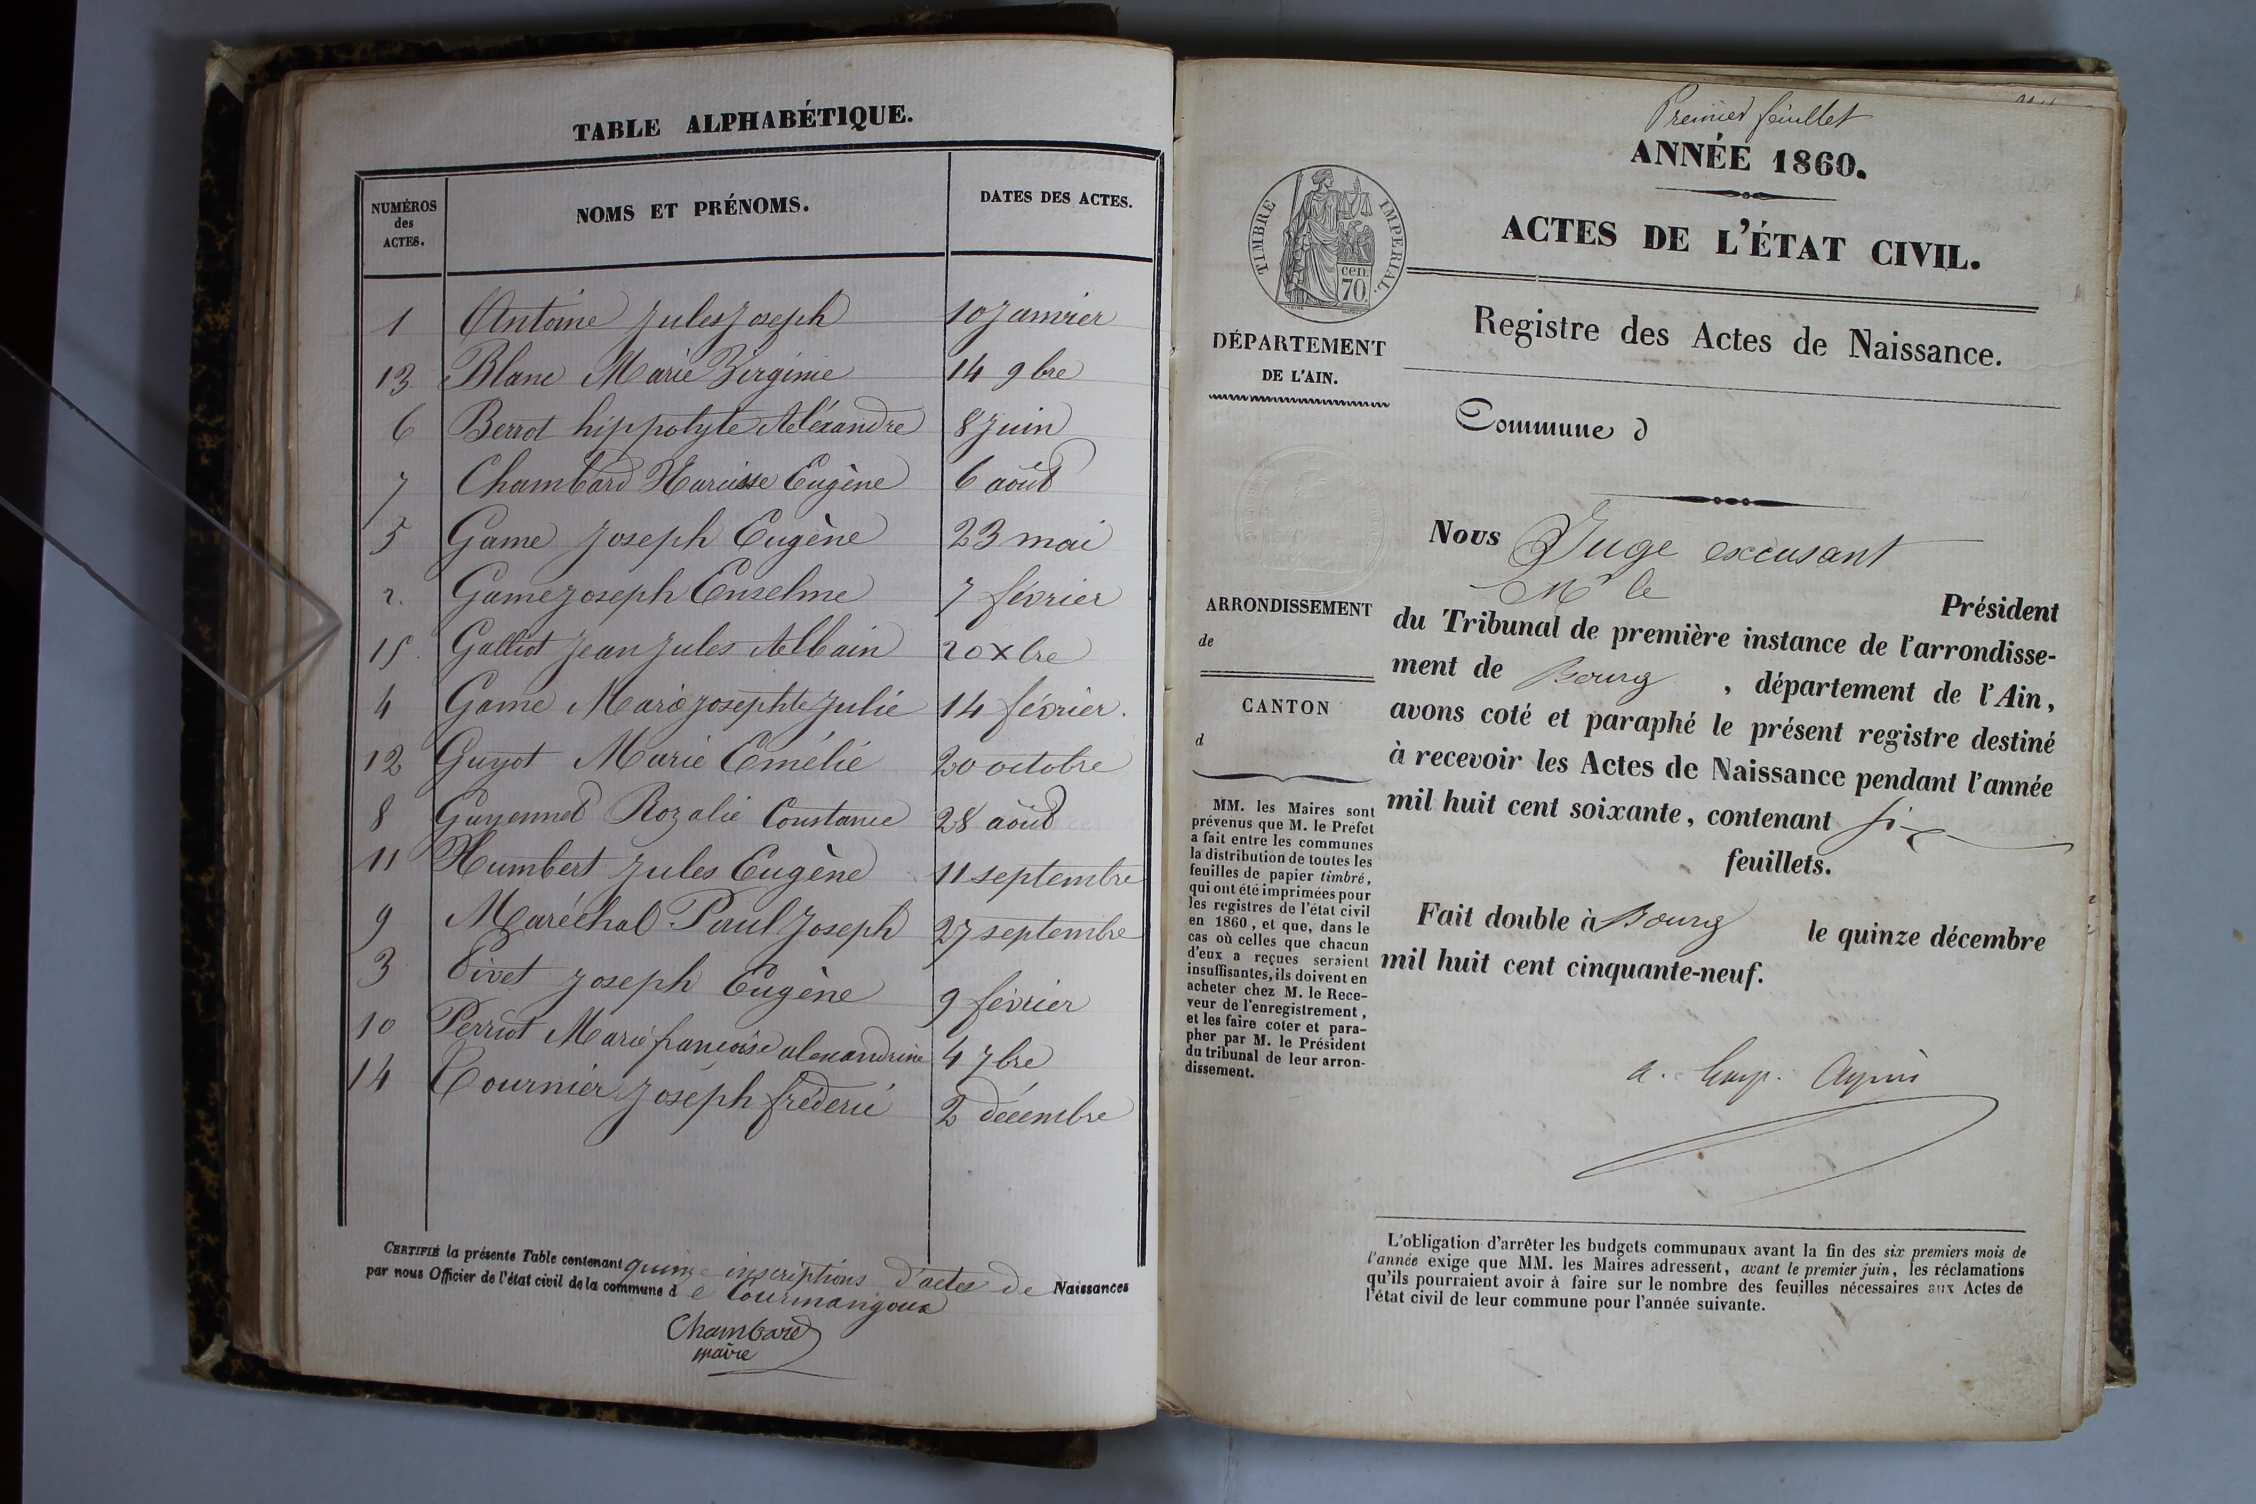 TABLE ALPHABÉTIQUE.
NUMÉROS des ACTES. NOMS ET PRÉNOMS. DATES DES ACTES.
1 Antoine Jules Joseph 10 Janvier
13 Blanc Marie Virginie 14 9bre
6 Berrot hippolyte Aléxandre 8 Juin
7 Chambard Narcisse Eugène 6 août
5 Game Joseph Eugène 23 mai
2. Game Joseph Enselme 7 février
15. Galliot Jean Jules Albain 20 Xbre
4 Game Marie Josephte Julie 14 février.
12 Guyot Marie Emélie 20 octobre
8 Guyennet Rozalie Constance 28 août
11 Humbert Jules Eugène 11 septembre
9 Maréchal Paul Joseph 27 septembre
3 Pivet Joseph Eugène 9 février
10 Perriot Marie françoise alexandrine 4 7bre
14 Tournier Joséph fréderic 2 décembre
CERTIFIÉ la présente Table contenant quinze inscriptions d'actes de Naissances
par nous Officier de l'état civil de la commune d e Courmangoux
Chambard
maire
Premier feuillet
ANNÉE 1860.
ACTES DE L'ÉTAT CIVIL.
TIMBRE IMPERIAL.
cen.
70
Registre des Actes de Naissance.
DÉPARTEMENT
DE L'AIN.
Commune d
Nous Juge excusant
Mr le Président
ARRONDISSEMENT
de
du Tribunal de première instance de l'arrondisse-
ment de Bourg , département de l'Ain,
CANTON
d
avons coté et paraphé le présent registre destiné
à recevoir les Actes de Naissance pendant l'année
mil huit cent soixante, contenant six
feuillets.
Fait double à Bourg le quinze décembre
mil huit cent cinquante-neuf.
MM. les Maires sont
prévenus que M. le Préfet
a fait entre les communes
la distribution de toutes les
feuilles de papier timbré,
qui ont été imprimées pour
les registres de l'état civil
en 1860, et que, dans le
cas où celles que chacun
d'eux a reçues seraient
insuffisantes, ils doivent en
acheter chez M. le Rece-
veur de l'enregistrement,
et les faire coter et para-
pher par M. le Président
du tribunal de leur arron-
dissement.
L'obligation d'arrêter les budgets communaux avant la fin des six premiers mois de
l'année exige que MM. les Maires adressent, avant le premier juin, les réclamations
qu'ils pourraient avoir à faire sur le nombre des feuilles nécessaires aux Actes de
l'état civil de leur commune pour l'année suivante.